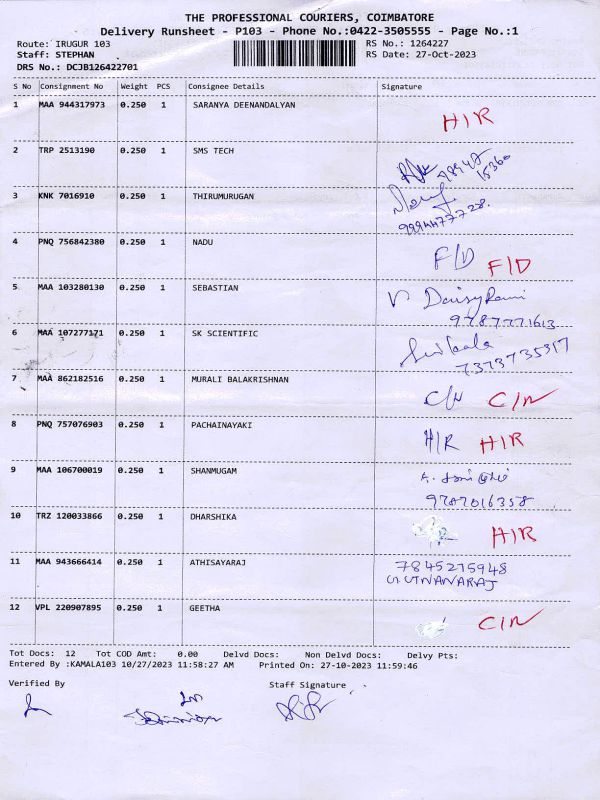 THE PROFESSIONAL COURIERS, COIMBATORE
Delivery Runsheet - P103 - Phone No.:0422-3505555 - Page No.:1
Route: IRUGUR 103 RS No.: 1264227
Staff: STEPHAN RS Date: 27-Oct-2023
DRS No.: DCJB126422701
S No Consignment No Weight PCS Consignee Details Signature
1 MAA 944317973 0.250 1 SARANYA DEENANDALYAN
H/R
2 TRP 2513190 0.250 1 SMS TECH
15360
3 KNK 7016910 0.250 1 THIRUMURUGAN
4 PNQ 756842380 0.250 1 NADU
F/D F/D
5 MAA 103280130 0.250 1 SEBASTIAN
V Daisy Rani
9787771613
6 MAA 107277171 0.250 1 SK SCIENTIFIC
7373735317
7 MAA 862182516 0.250 1 MURALI BALAKRISHNAN
C/N C/N
8 PNQ 757076903 0.250 1 PACHAINAYAKI
H/R H/R
9 MAA 106700019 0.250 1 SHANMUGAM
9787016358
10 TRZ 120033866 0.250 1 DHARSHIKA
H/R
11 MAA 943666414 0.250 1 ATHISAYARAJ
7845215948
12 VPL 220907895 0.250 1 GEETHA
C/N
Tot Docs: 12 Tot COD Amt: 0.00 Delvd Docs: Non Delvd Docs: Delvy Pts:
Entered By :KAMALA103 10/27/2023 11:58:27 AM Printed On: 27-10-2023 11:59:46
Verified By Staff Signature